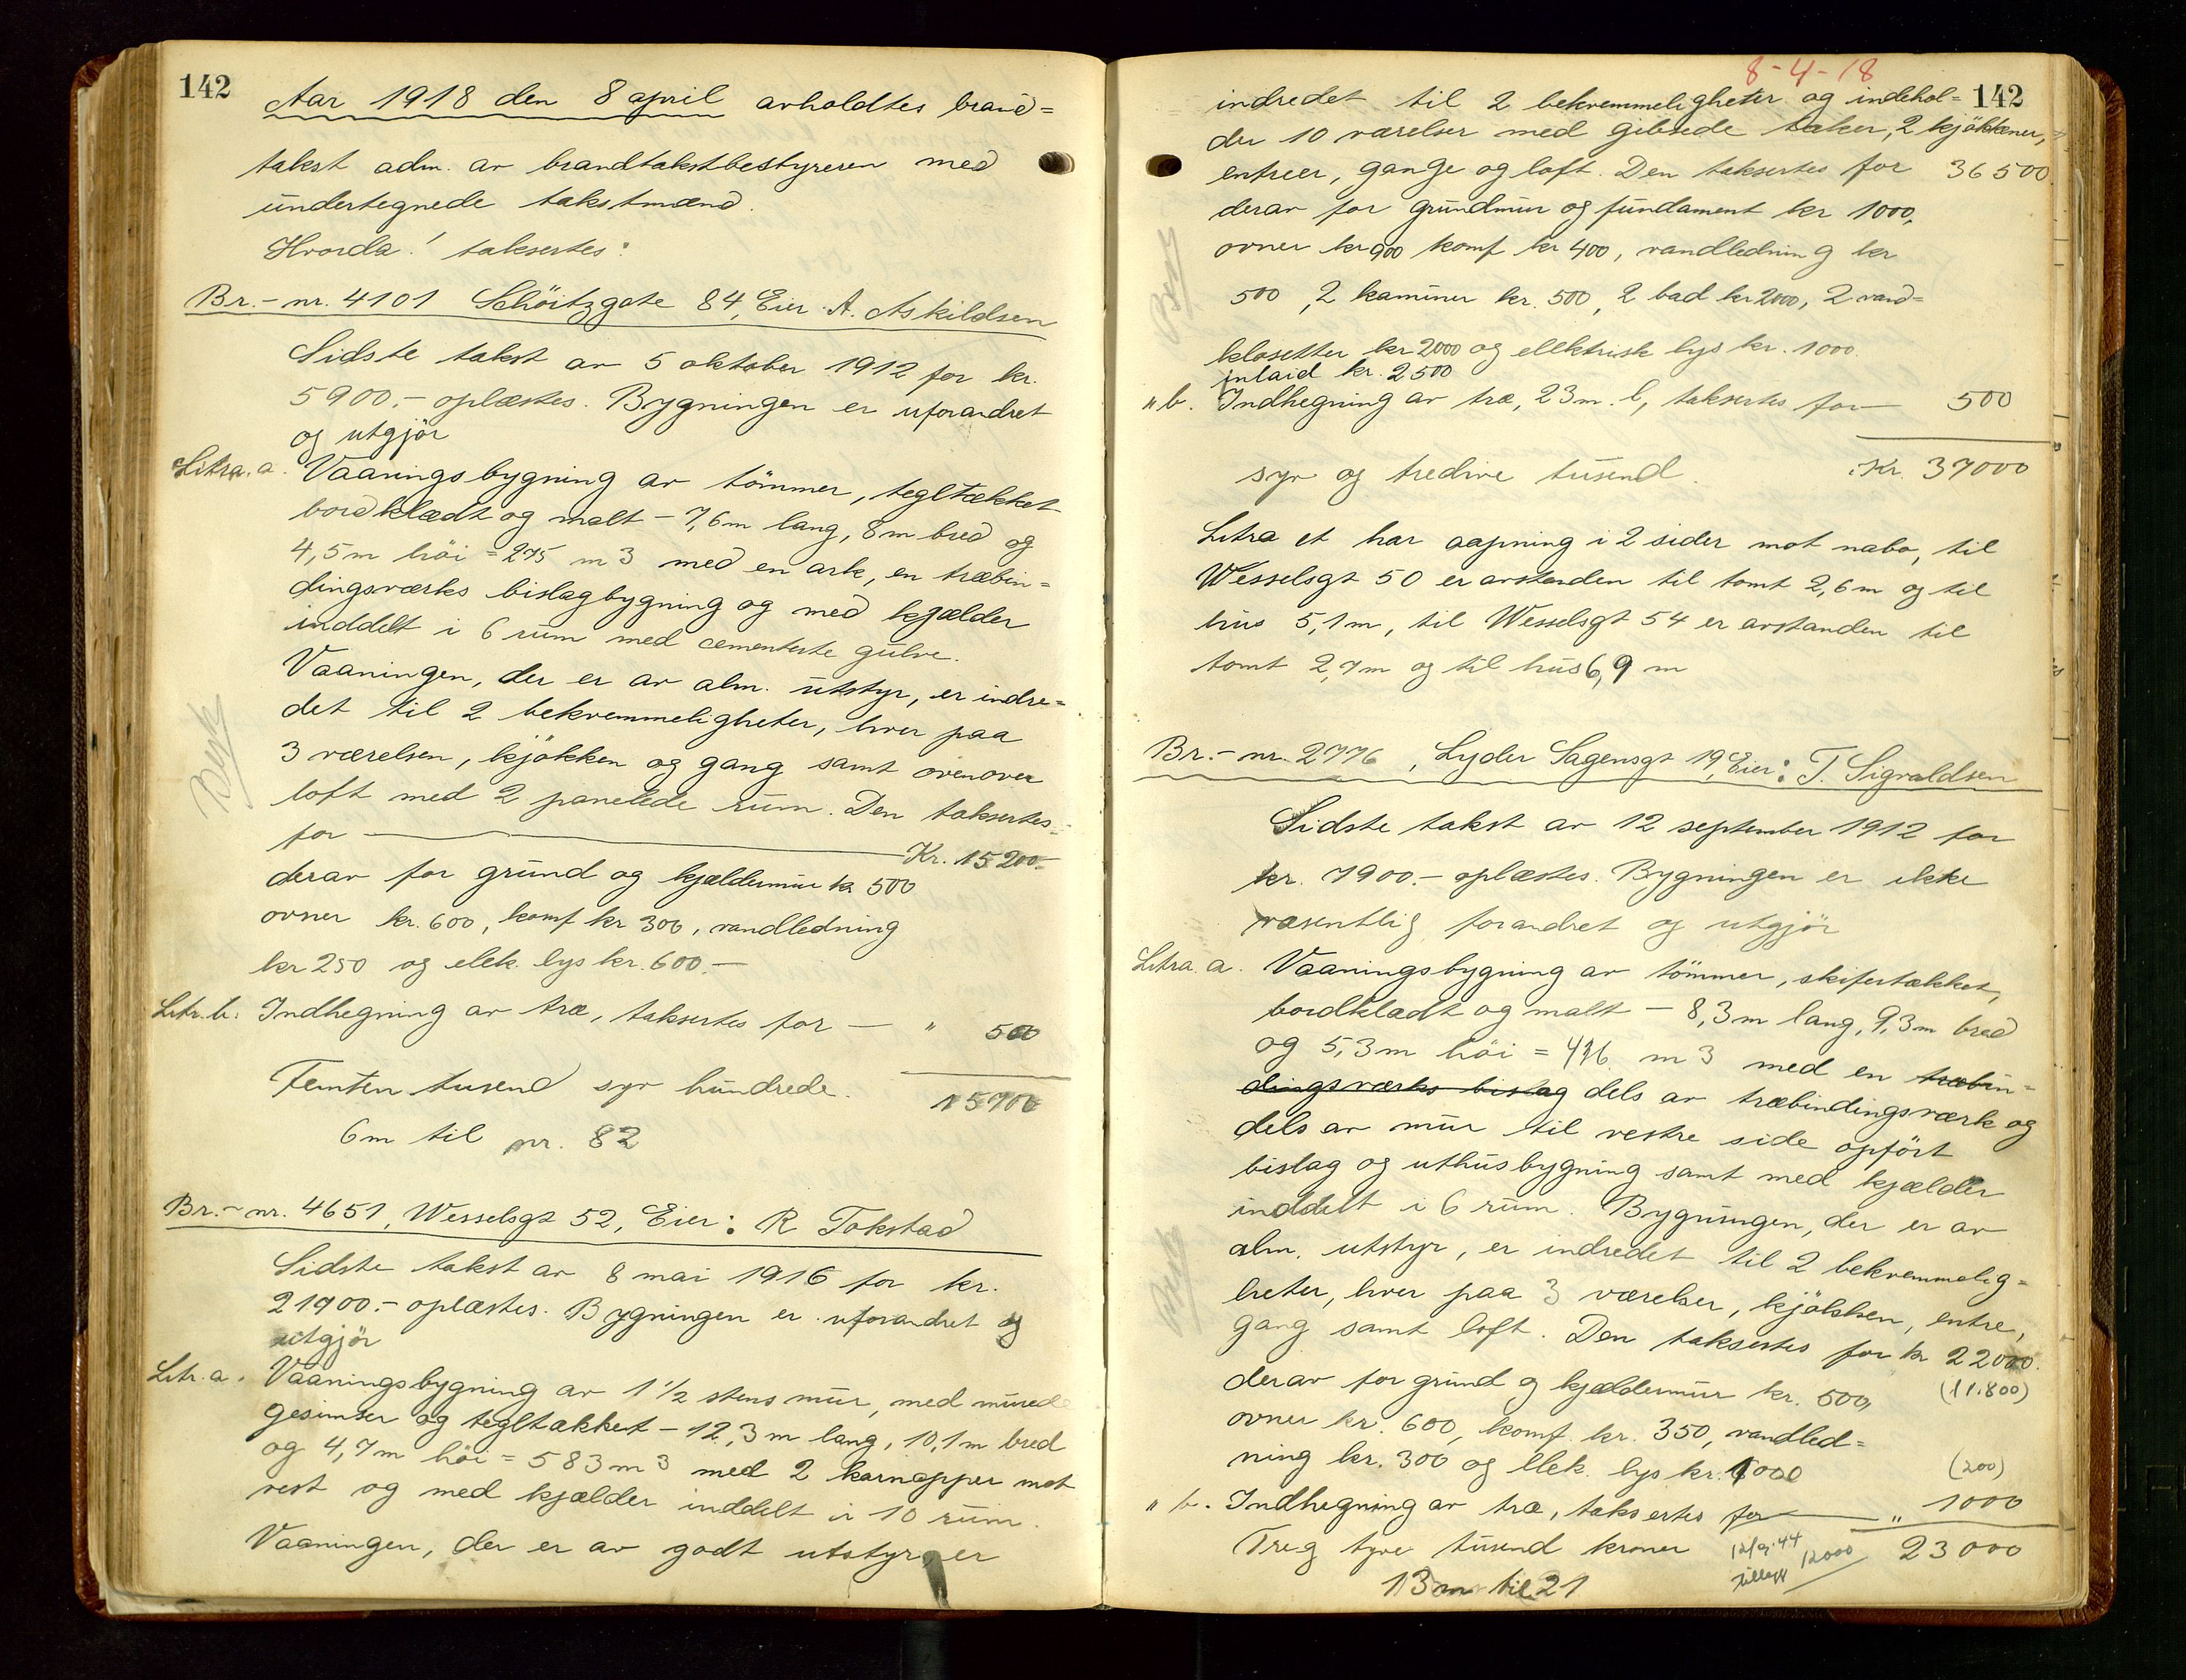 142
Aar 1918 den 8 april avholdtes brand=
takst adm. av brandtakstbestyreren med
undertegnede takstmænd.
Hvorda! taksertes:
Br.- nr. 4101 Schöitzgate 84, Eier A. Askildsen
Sidste takst av 5 oktober 1912 for kr.
5900.- oplæstes. Bygningen er uforandret
og utgjör
Litra. a. Vaaningsbygning av tömmer, tegltækket
bordklædt og malt - 7,6m lang, 8m bred og
4,5m höi = 275 m3 med en ark, en træbin=
dingsværks bislagbygning og med kjælder
inddelt i 6 rum med cementerte gulve.
Vaaningen, der er av alm. utstyr, er indre=
det til 2 bekvemmeligheter, hver paa
3 værelser, kjökken og gang samt ovenover
loft med 2 panelede rum. Den taksertes
for Kr. 15200.-
derav for grund og kjældermur kr 500
ovner kr. 600, komf kr 300, vandledning
kr 250 og elek. lys kr. 600.-
Litr. b. Indhegning av træ, taksertes for - " 500
Femten tusend syv hundrede. 15700
6m til nr. 82
Br.- nr. 4651, Wesselsgt 52, Eier: R Tokstad
Sidste takst av 8 mai 1916 for kr.
21900.- oplæstes. Bygningen er uforandret og
utgjör
Litr. a. Vaaningsbygning av 1 1/2 stens mur, med murede
gesimser og tegltækket - 12,3m lang, 10,1m bred
og 4,7m höi = 583m3 med 2 karnapper mot
vest og med kjælder inddelt i 10 rum.
Vaaningen, der er av godt utstyr, er
Bryk
8-4-18
142
indredet til 2 bekvemmeligheter og indehol=
der 10 værelser med gibsede taker, 2 kjökkener,
entreer, gange og loft. Den taksertes for 36500
derav for grundmur og fundament kr 1000,
ovner kr 900 komf kr 400, vandledning kr
500, 2 kaminer kr. 500, 2 bad kr 2000, 2 vand=
klosetter kr 2000 og ellektrisk lys kr. 1000.
inlaid kr. 2500
" b. Indhegning av træ, 23m. l, taksertes for 500
syv og tredive tusend. Kr. 37000
Litra a har aapning i 2 sider mot nabo, til
Wesselsgt 50 er avstanden til tomt 2,6m og til
hus 5,1m, til Wesselsgt 54 er avstanden til
tomt 2,7m og til hus 6,9 m
Br.- nr. 2776, Lyder Sagensgt 19, Eier: T. Sigvaldsen
Sidste takst av 12 september 1912 for
kr. 7900.- oplæstes. Bygningen er ikke
væsentlig forandret og utgjör
Litra a. Vaaningsbygning av tömmer, skifertækket,
bordklædt og malt - 8,3m lang, 9,3m bred
og 5,3m höi = 416 m3 med en træbin=
dingsværks bislag dels av træbindingsværk og
dels av mur til vestre side opfört
bislag og uthusbygning samt med kjælder
inddelt i 6 rum. Bygningen, der er av
alm. utstyr, er indredet til 2 bekvemmelig=
heter, hver paa 3 værelser, kjökken, entre,
gang samt loft. Den taksertes for kr 22000.
derav for grund og kjældermur kr. 500, (11.800)
ovner kr. 600, komf. kr. 350, vandled=
ning kr. 300 og Elek. lys kr. 1000 (200)
" b. Indhegning av træ, taksertes for " 1000
Tre og tyve tusend kroner 12/9.44 12000 23000
tillegg
13m til 21